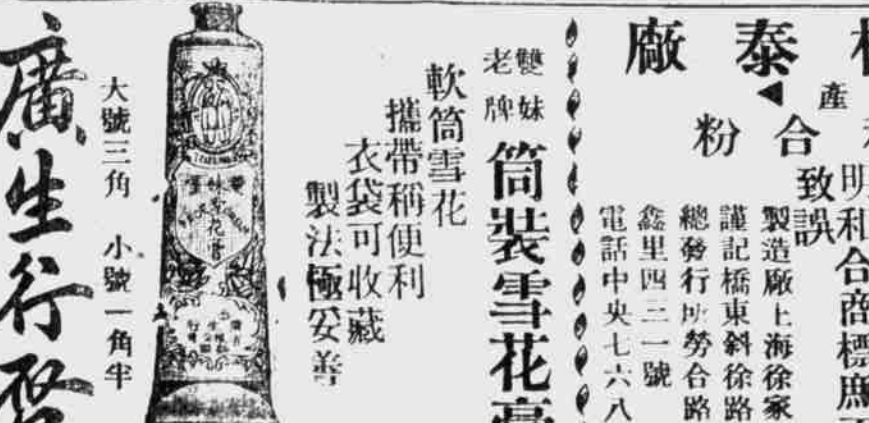 泰廠
產
合粉
明和合商標庶
致誤
製造廠上海徐家
謹記橋東斜徐路
總發行所勞合路
鑫里四三一號
電話中央七六八
雙妹
老牌
筒裝雪花膏
軟筒雪花
攜帶稱便利
衣袋可收藏
製法極妥善
雙妹
雪花膏
大號三角 小號一角半
廣生行